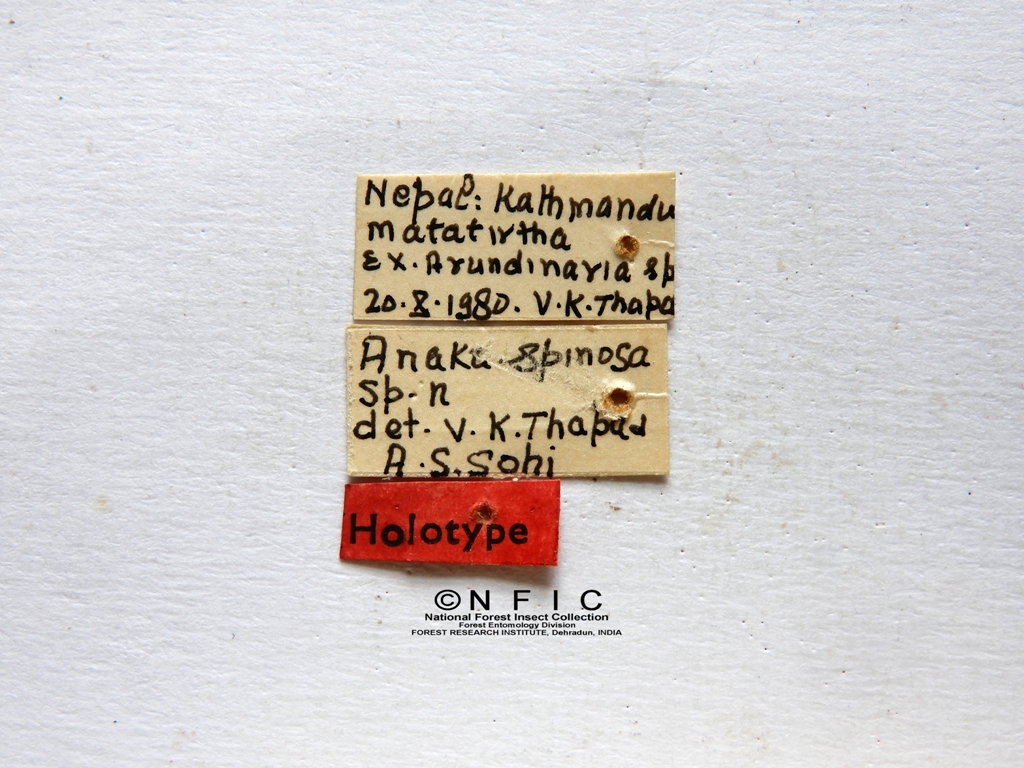 Nepal: Kathmandu
matatirtha
Ex. Arundinaria sp
20.X.1980. V.K.Thapa
Anaka spinosa
sp. n
det. V. K. Thapa &
A. S. Sohi
Holotype
© N F I C
National Forest Insect Collection
Forest Entomology Division
FOREST RESEARCH INSTITUTE, Dehradun, INDIA